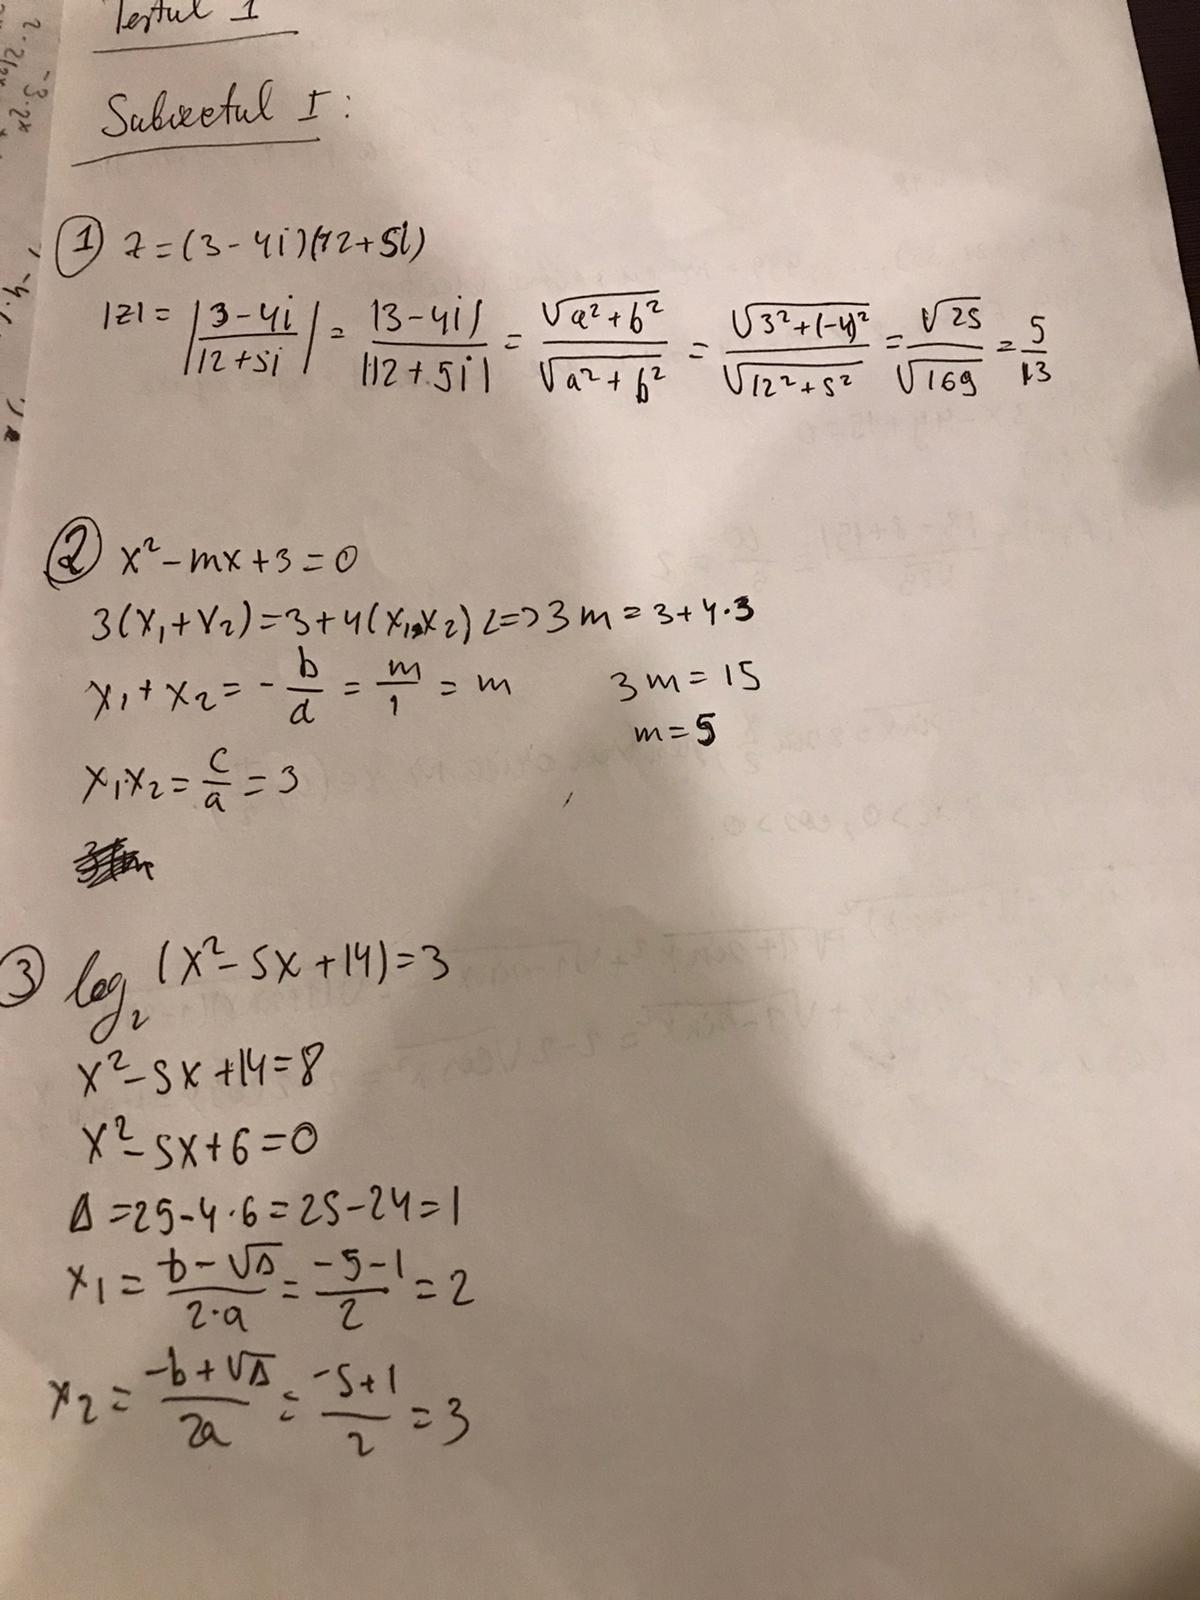 Testul 1
Subiectul I:
① z=(3-4i)(12+5i)
|z|= |3-4i/12+5i| = |3-4i|/|12+5i| = √a²+b²/√a²+b² = √3²+(-4)²/√12²+5² = √25/√169 = 5/13
② x²-mx+3=0
3(x₁+x₂)=3+4(x₁·x₂) <=> 3m=3+4·3
x₁+x₂=-b/a=m/1=m 3m=15
m=5
x₁·x₂=c/a=3
③ log₂(x²-5x+14)=3
x²-5x+14=8
x²-5x+6=0
Δ=25-4·6=25-24=1
x₁=-b-√Δ/2·a=-5-1/2=2
x₂=-b+√Δ/2a=-5+1/2=3